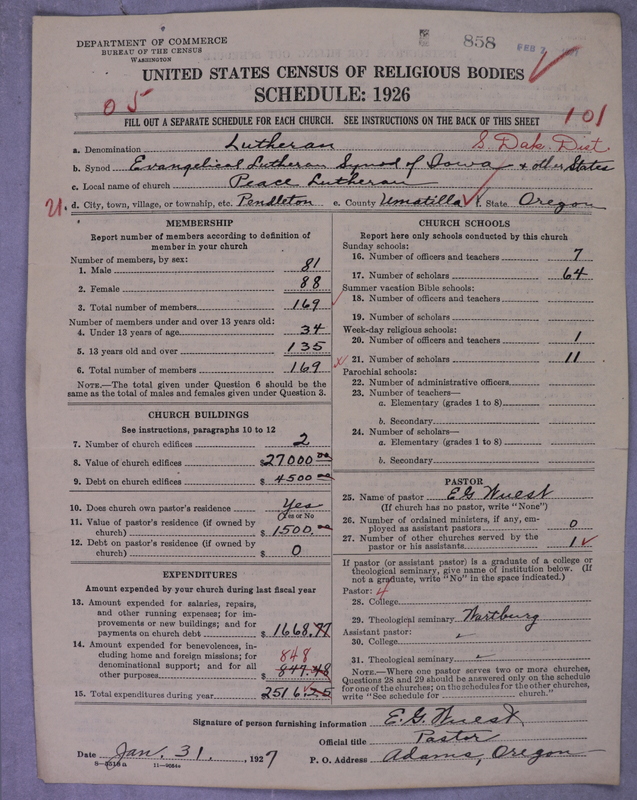 DEPARTMENT OF COMMERCE
BUREAU OF THE CENSUS
WASHINGTON
858
FEB 7
UNITED STATES CENSUS OF RELIGIOUS BODIES
SCHEDULE: 1926
05
FILL OUT A SEPARATE SCHEDULE FOR EACH CHURCH. SEE INSTRUCTIONS ON THE BACK OF THIS SHEET
101
a. Denomination Lutheran S. Dak. Dist
b. Synod Evangelical Lutheran Synod of Iowa & other States
c. Local name of church Peace Lutheran
21. d. City, town, village, or township, etc. Pendleton e. County Umatilla f. State Oregon
MEMBERSHIP
Report number of members according to definition of
member in your church
Number of members, by sex:
1. Male 81
2. Female 88
3. Total number of members 169
Number of members under and over 13 years old:
4. Under 13 years of age 34
5. 13 years old and over 135
6. Total number of members 169
NOTE.—The total given under Question 6 should be
same as the total of males and females given under Question 3.
CHURCH BUILDINGS
See instructions, paragraphs 10 to 12
7. Number of church edifices 2
8. Value of church edifices $27000 00
9. Debt on church edifices $4500 00
10. Does church own pastor's residence Yes
(Yes or No
11. Value of pastor's residence (if owned by
church) $1500.00
12. Debt on pastor's residence (if owned by
church) $ 0
EXPENDITURES
Amount expended by your church during last fiscal year
13. Amount expended for salaries, repairs,
and other running expenses; for im-
provements or new buildings; and for
payments on church debt $1668.77
14. Amount expended for benevolences, in-
cluding home and foreign missions; for 848
denominational support; and for all
other purposes $847.48
15. Total expenditures during year 2516.25
CHURCH SCHOOLS
Report here only schools conducted by this church
Sunday schools:
16. Number of officers and teachers 7
17. Number of scholars 64
Summer vacation Bible schools:
18. Number of officers and teachers
19. Number of scholars
Week-day religious schools:
20. Number of officers and teachers 1
21. Number of scholars 11
Parochial schools:
22. Number of administrative officers
23. Number of teachers—
a. Elementary (grades 1 to 8)
b. Secondary
24. Number of scholars—
a. Elementary (grades 1 to 8)
b. Secondary
PASTOR
25. Name of pastor E G Wuest
(If church has no pastor, write "None")
26. Number of ordained ministers, if any, em-
ployed as assistant pastors 0
27. Number of other churches served by the
pastor or his assistants 1
If pastor (or assistant pastor) is a graduate of a college or
theological seminary, give name of institution below. (If
not a graduate, write "No" in the space indicated.)
Pastor: 4
28. College
29. Theological seminary Wartburg
Assistant pastor:
30. College
31. Theological seminary
NOTE.—Where one pastor serves two or more churches,
Questions 28 and 29 should be answered only on the schedule
for one of the churches; on the schedules for the other churches,
write "See schedule for church."
Signature of person furnishing information E. G. Wuest
Official title Pastor
Date Jan. 31., 1927 P. O. Address Adams, Oregon